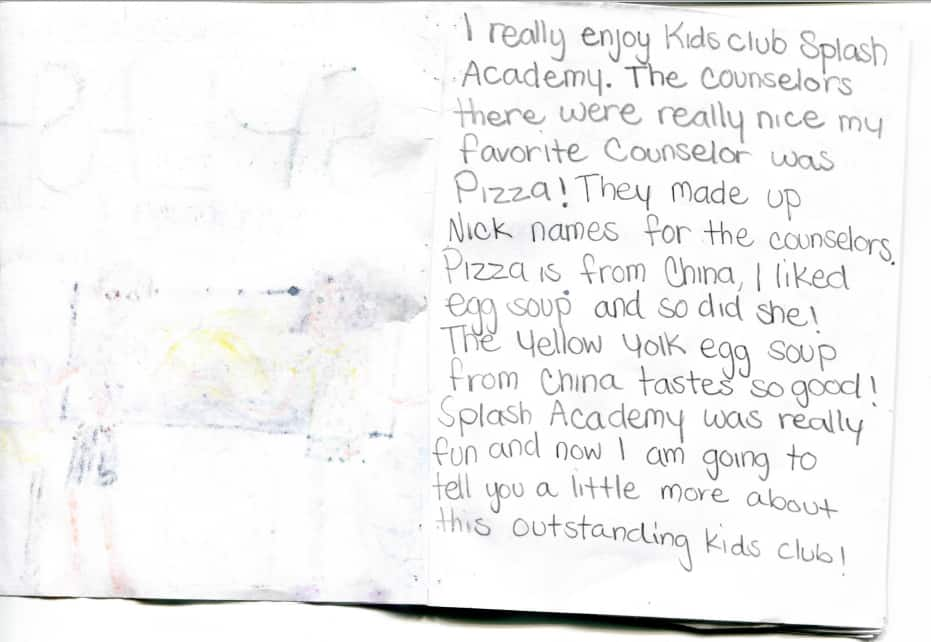 I really enjoy Kids club Splash
Academy. The counselors
there were really nice my
favorite Counselor was
Pizza! They made up
Nick names for the counselors.
Pizza is from China, I liked
egg soup and so did she!
The Yellow Yolk egg soup
from China tastes so good!
Splash Academy was really
fun and now I am going to
tell you a little more about
this outstanding kids club!